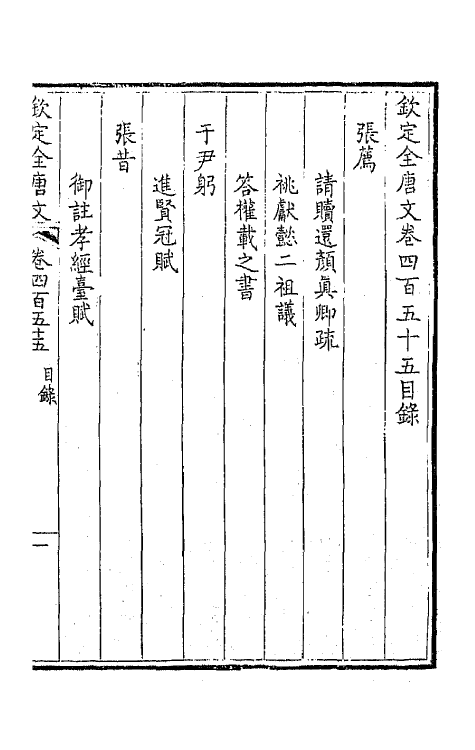 欽定全唐文卷四百五十五目錄
張薦
請贖還顏眞卿疏
祧獻懿二祖議
答權載之書
于尹躬
進賢冠賦
張昔
御註孝經臺賦
欽定全唐文 卷四百五十五 目錄 一